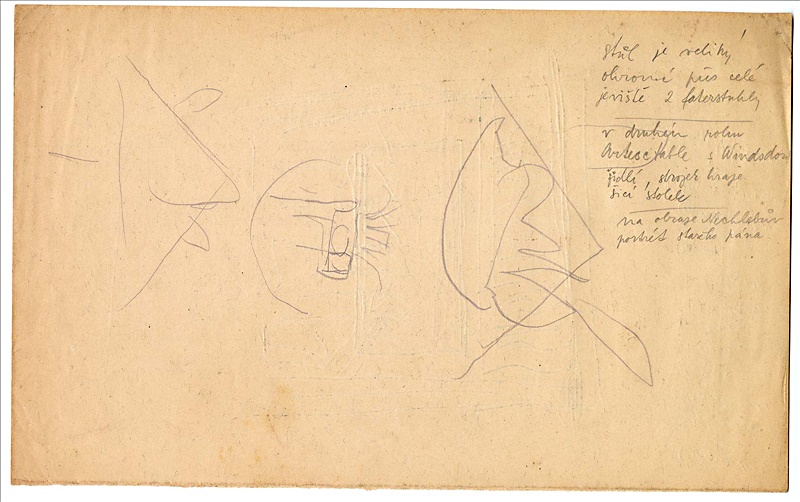 stůl je veliký
ohromné přes celé
jeviště 2 faterstuhly
v druhým
s Windsdor
židlí, strojek hraje
šicí stolek
na obraze Nechlebův
portrét starýho pána